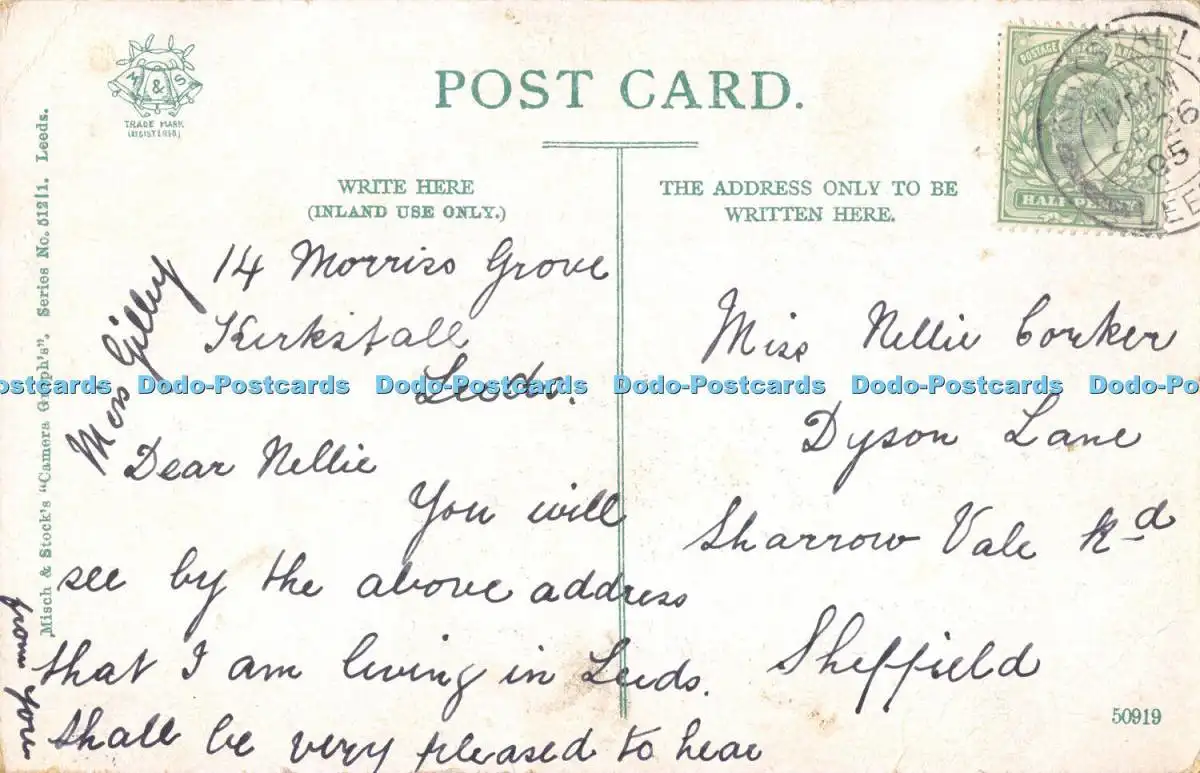 M & S
TRADE MARK
POST CARD.
POSTAGE
HALFPENNY
26
05
WRITE HERE
(INLAND USE ONLY.)
THE ADDRESS ONLY TO BE
WRITTEN HERE.
Misch & Stock's "Camera Graph's". Series No. 512/1. Leeds.
14 Morriss Grove
Kirkstall
Leeds.
Miss Gilley
Dear Nellie
You will
see by the above address
that I am living in Leeds.
shall be very pleased to hear
from you
Miss Nellie Corker
Dyson Lane
Sharrow Vale Rd
Sheffield
50919
Dodo-Postcards Dodo-Postcards Dodo-Postcards Dodo-Postcards Dodo-Postcards